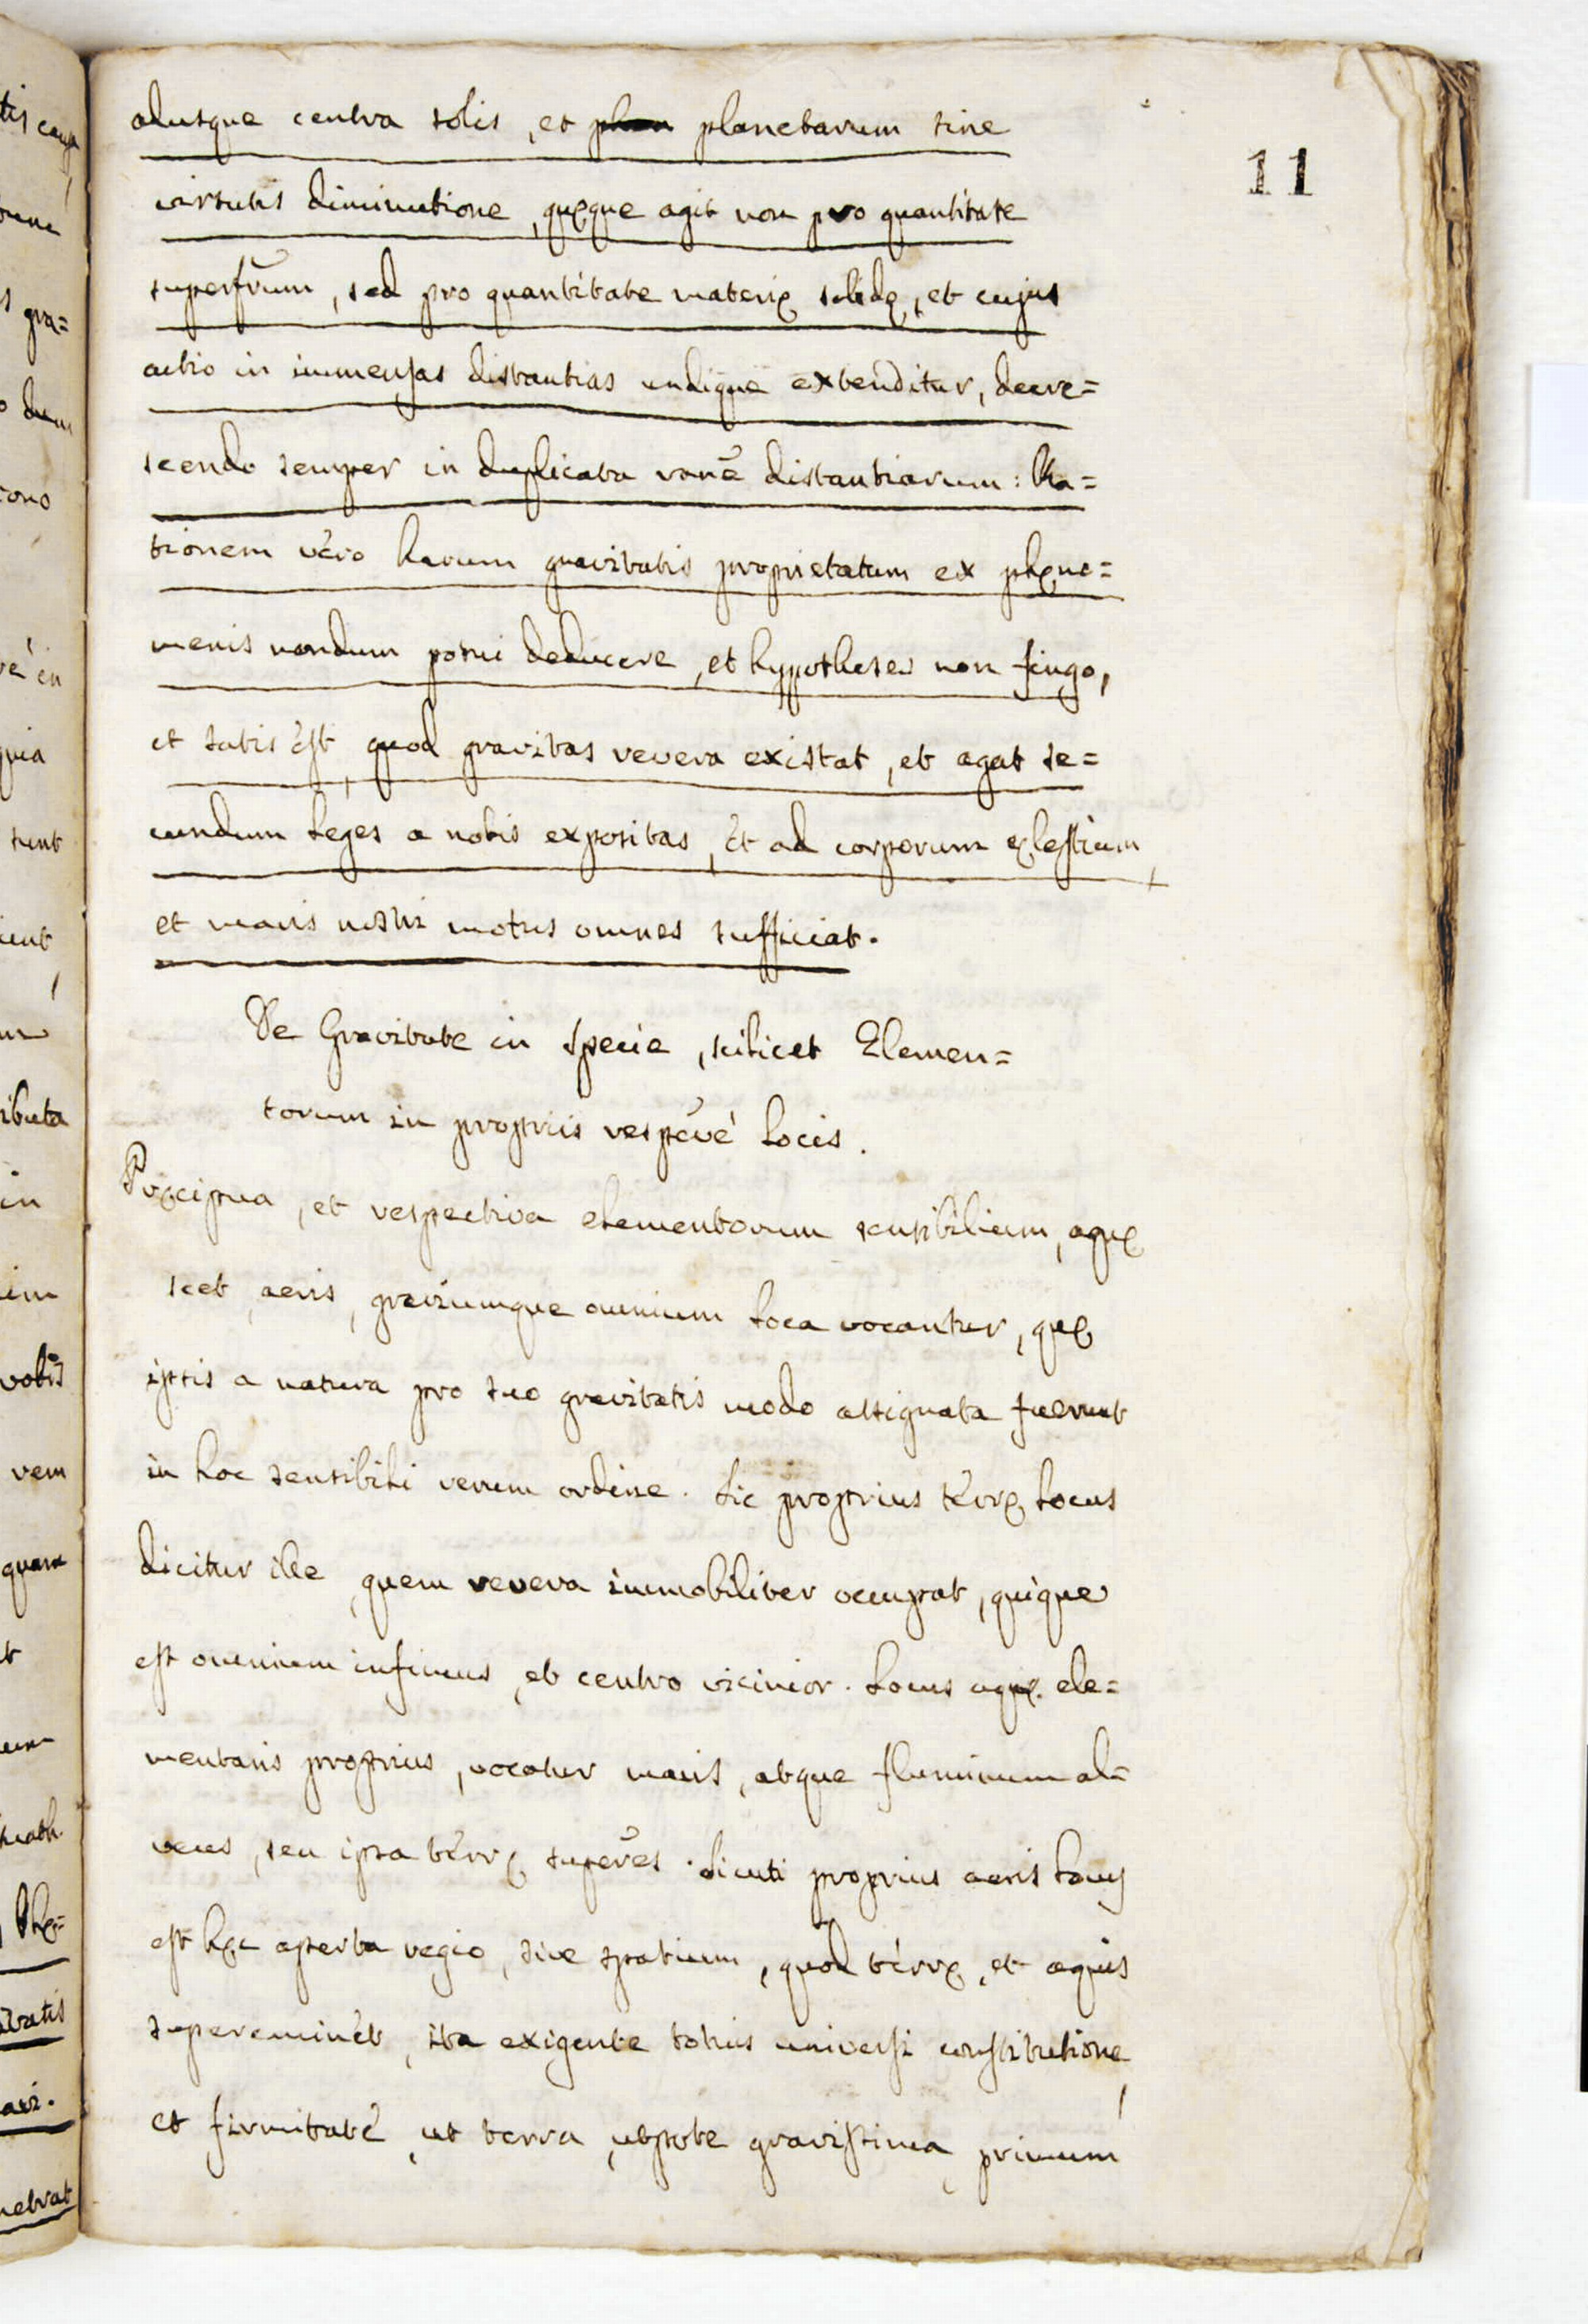 11
adusque centra solis, et planetarum sine
virtutis diminutione, quęque agit non pro quantitate
superfrum, sed pro quantitate materię solidę, et cujus
actio in immensas distantias undique extenditur, decre=
scendo semper in duplicata ronē distantiarum: Ra=
tionem vèro harum gravitatis proprietatum ex phęno=
menis nondum potui deducere, et hypotheses non fingo,
et satis est, quod gravitas revera existat, et agat se=
cundum leges a nobis expositas, et ad corporum cęlestium,
et maris nostri motus omnes sufficiat.
De Gravitate in specie, scilicet Elemen=
torum in propriis respēvè locis.
Pręcipua, et respectiva elementorum sensibilium, aquę
scet, aeris, graviumque omnium loca vocantur, quę
ipsis a natura pro suo gravitatis modo assignata fuerunt
in hoc sensibili rerum ordine. Sic proprius terrę locus
dicitur ille, quem revera immobiliter occupat, quique
est omnium infimus, et centro vicinior. Locus aquę ele=
mentaris proprius, vocatur maris, atque fluminum al=
veus, seu ipsa terrę superēs. Sicuti proprius aeris locus
est hęc aperta regio, sive spatium, quod terrę, et aquis
supereminet, ita exigente totius universi constitutione,
et firmitate, ut terra, utpote gravissima, primum